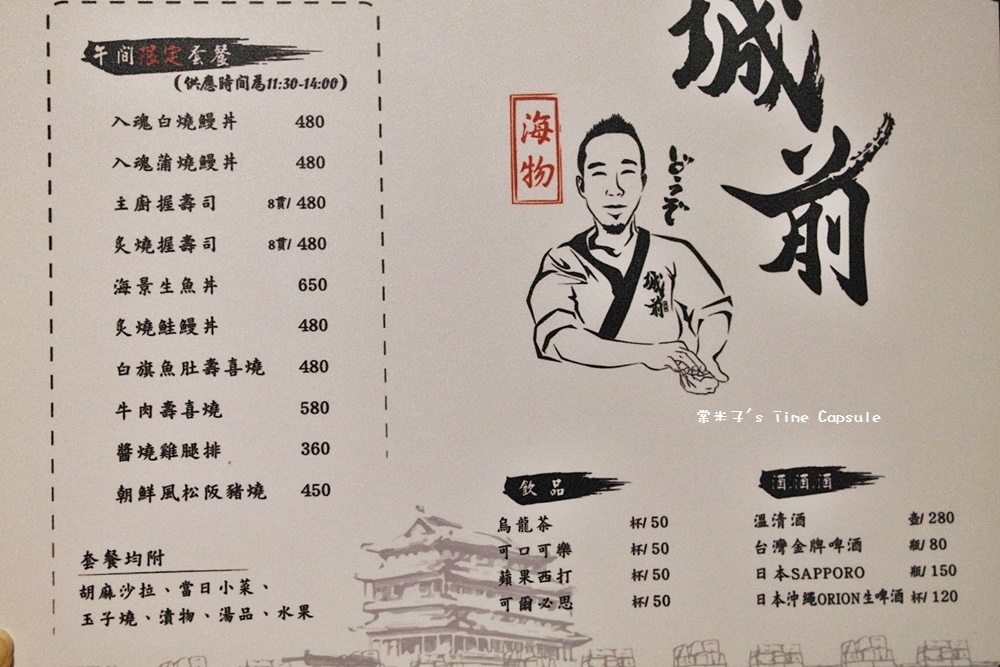 午間限定套餐
(供應時間為11:30-14:00)
入魂白燒鰻丼 480
入魂蒲燒鰻丼 480
主廚握壽司 8貫/ 480
炙燒握壽司 8貫/ 480
海景生魚丼 650
炙燒鮭鰻丼 480
白旗魚肚壽喜燒 480
牛肉壽喜燒 580
醬燒雞腿排 360
朝鮮風松阪豬燒 450
套餐均附
胡麻沙拉、當日小菜、
玉子燒、漬物、湯品、水果
城前
海物
どうぞ
城前
棠米子's Time Capsule
飲品
烏龍茶 杯/ 50
可口可樂 杯/ 50
蘋果西打 杯/ 50
可爾必思 杯/ 50
酒.酒.酒
溫清酒 壺/ 280
台灣金牌啤酒 瓶/ 80
日本SAPPORO 瓶/ 150
日本沖繩ORION生啤酒 杯/ 120